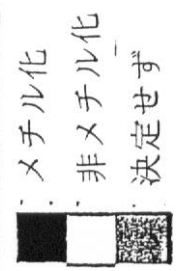 : メチル化
: 非メチル化
: 決定せず